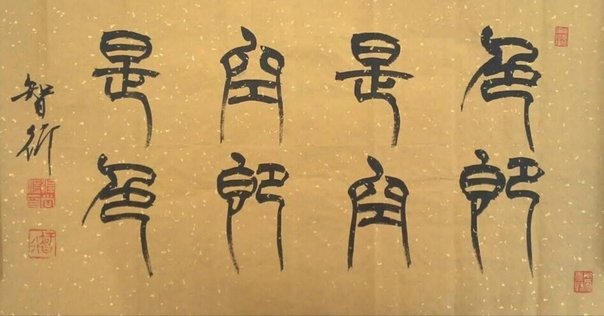 色即
是空
空即
是色
智